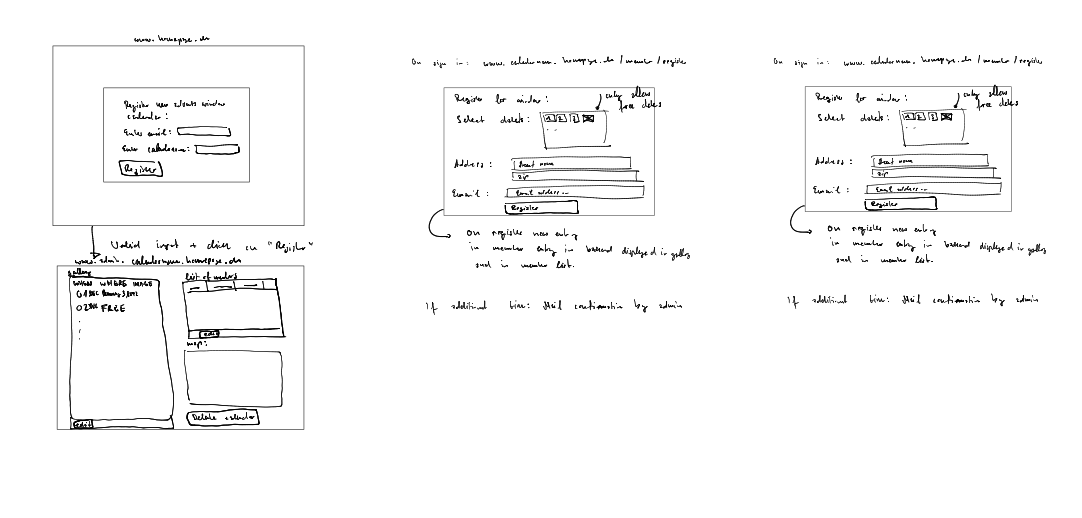 www.homepage.de
Register new advents window
calendar:
Enter email:
Enter calendarname:
Register
Valid input + click on "Register"
www.admin.calendarname.homepage.de
gallery
WHEN WHERE IMAGE
01 DEC
02 DEC FREE
edit
list of members
edit
map:
Delete calendar
On sign in: www.calendarname.homepage.de/member/register
Register for window:
only allow
free dates
Select date:
1 2 3
Address:
Street name
Zip
Email:
Email address...
Register
On register new entry
in member entry in backend displayed in gallery
and in member list.
If additional time: Mail confirmation by admin
On sign in: www.calendarname.homepage.de/member/register
Register for window:
only allow
free dates
Select date:
1 2 3
Address:
Street name
Zip
Email:
Email address...
Register
On register new entry
in member entry in backend displayed in gallery
and in member list.
If additional time: Mail confirmation by admin